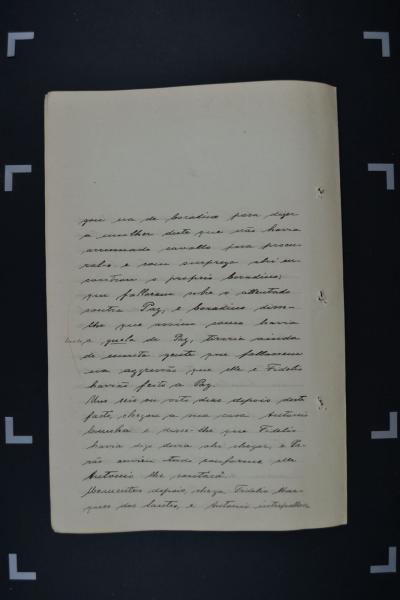 gou na de Coradino para dizer
a mulher deste que não havia
arrumado cavallo para procu-
ral-o e com surpreza ahi en-
controu o proprio Coradino;
que fallaram sobre o attentado
contra Paz, e Coradino disse-
lhe que assim como havia
a quela de Paz, teriam ainda
de muita gente que fallassem
na aggressão que elle e Fidelis
havião feito a Paz.
Uns seis ou oito dias depois deste
facto, chegou a sua casa Antonio
Cunha e disse-lhe que Fidelis
havia dizer devia ahi chegar, e
rão ouvira tudo conforme elle
Antonio lhe contará.
Momentos depois, chega Fidelis Mar-
ques dos Santos, e Antonio interpellou